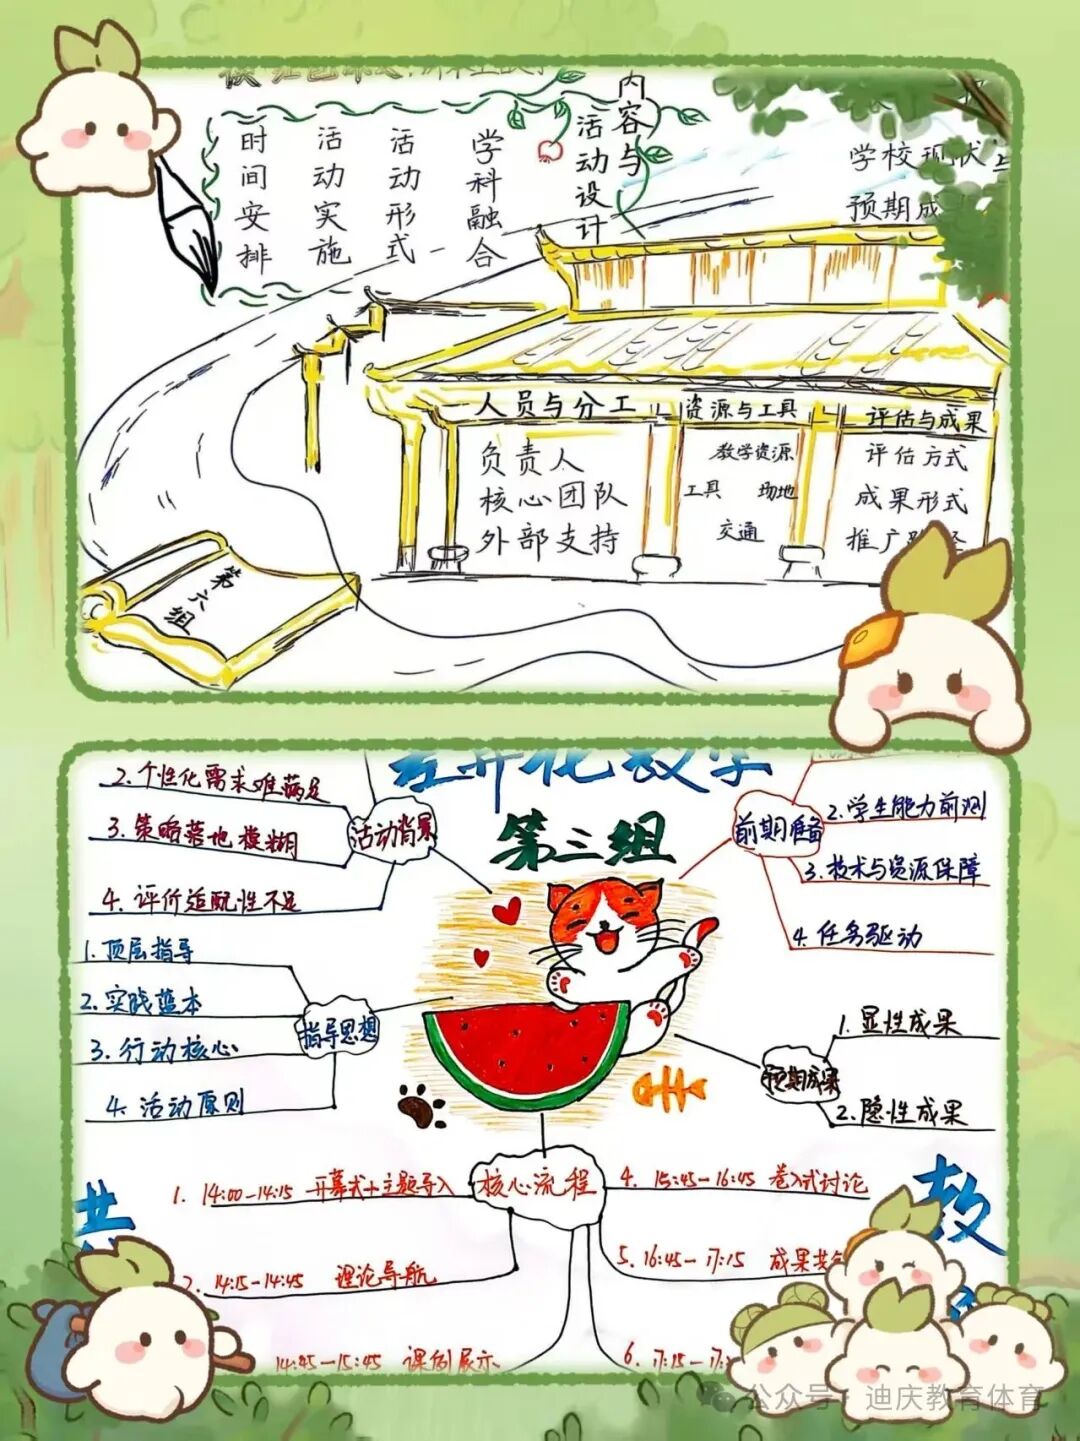 时间安排
活动实施
活动形式
学科融合
内容与
活动设计
学校现状与
预期成
人员与分工
负责人
核心团队
外部支持
资源与工具
教学资源
工具 场地
交通
评估与成果
评估方式
成果形式
推广
第六组
差异化教学
第三组
活动背景
2.个性化需求难满足
3.策略落地模糊
4.评价适配性不足
指导思想
1.顶层指导
2.实践蓝本
3.行动核心
4.活动原则
前期准备
2.学生能力前测
3.技术与资源保障
4.任务驱动
预期成果
1.显性成果
2.隐性成果
核心流程
1. 14:00-14:15 开幕式+主题导入
2. 14:15-14:45 理论导航
14:45-15:45 课例展示
4. 15:45-16:45 卷入式讨论
5. 16:45-17:15 成果共
6. 17:15-17:
共
教
公众号·迪庆教育体育